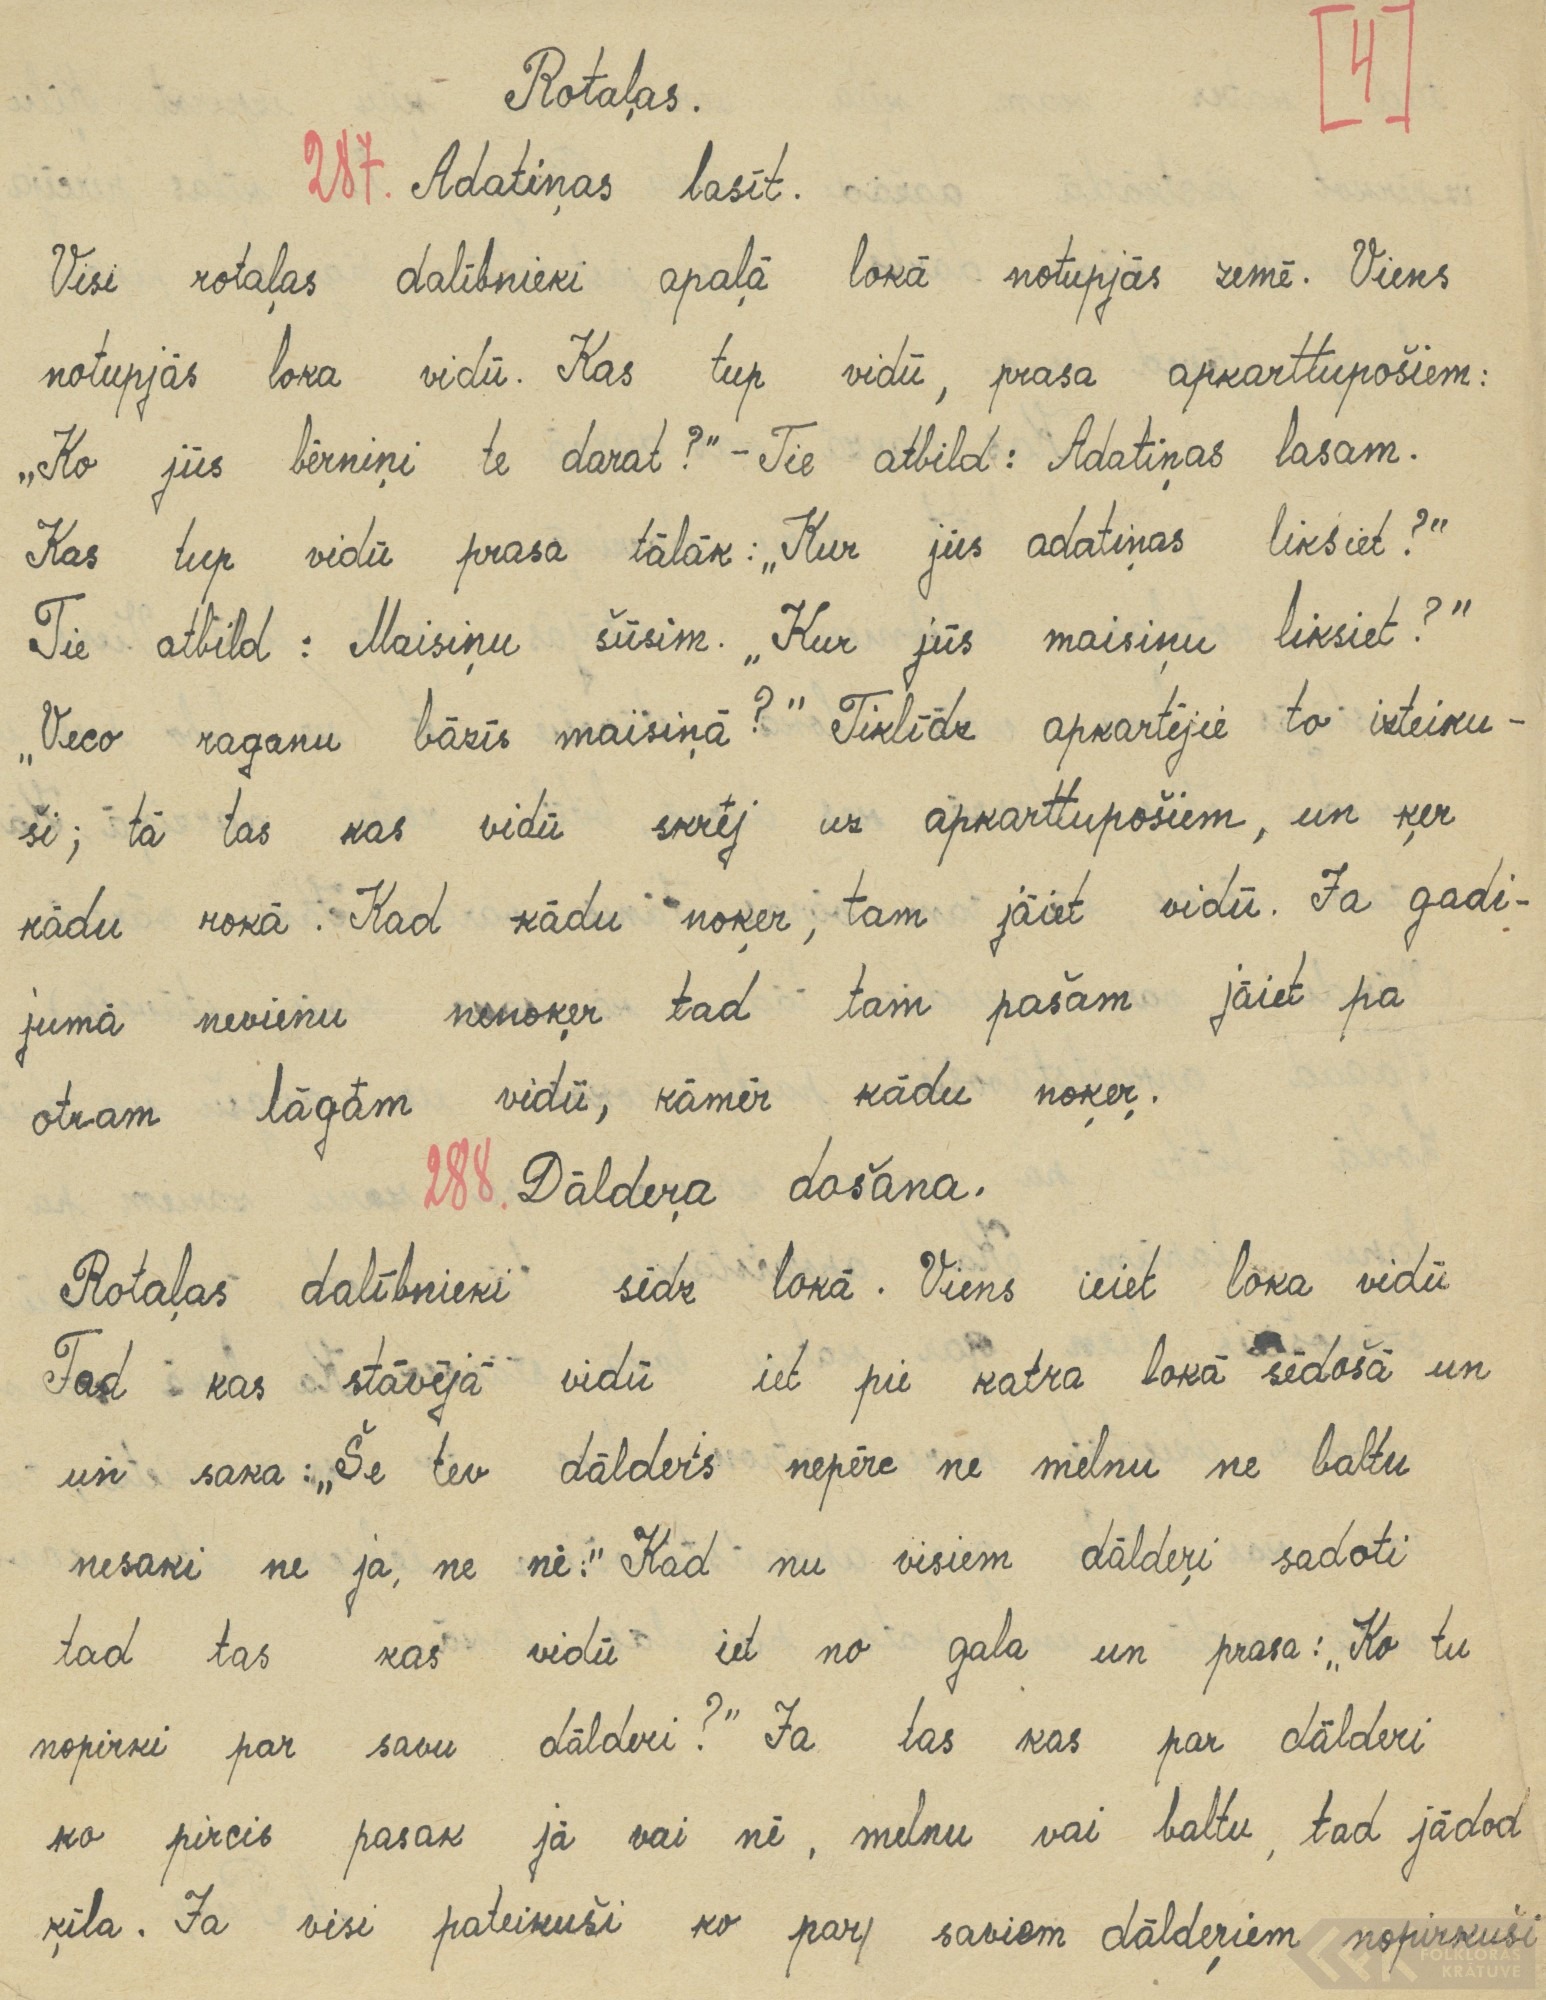 [4]
Rotaļas.
287. Adatiņas lasīt.
Visi rotaļas dalībnieki apaļā lokā notupjās zemē. Viens
notupjās loka vidū. Kas tup vidū, prasa apkarttupošiem:
„Ko jūs bērniņi te darat?" – Tie atbild: Adatiņas lasam.
Kas tup vidū prasa tālāk: „Kur jūs adatiņas liksiet?"
Tie atbild: Maisiņu šūsim. „Kur jūs maisiņu liksiet?"
„Veco raganu bāzīs maisiņā?" Tiklīdz apkartējie to izteiku-
ši; tā tas kas vidū skrēj uz apkarttupošiem, un ķer
kādu rokā. Kad kādu noķer, tam jāiet vidū. Ja gadi-
jumā nevienu nenoķer tad tam pašam jāiet pa
otram lāgam vidū, kāmēr kādu noķeŗ.
288. Dāldeŗa došana.
Rotaļas dalībnieki sēdz lokā. Viens ieiet loka vidū
Tad kas stāvējā vidū iet pie katra lokā sēdošā un
un saka: „Še tev dālders nepērc ne melnu ne baltu
nesaki ne ja, ne nē." Kad nu visiem dāldeŗi sadoti
tad tas kas vidū iet no gala un prasa: „Ko tu
nopirki par savu dālderi?" Ja tas kas par dālderi
ko pircis pasak jā vai nē, melnu vai baltu, tad jādod
ķīla. Ja visi pateikuši ko par saviem dāldeŗiem nopirkuši
FOLKLORAS
KRĀTUVE